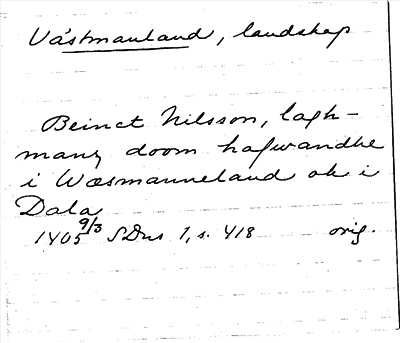 Västmanland, landskap
Beinct Nilsson, lagh-
manz doom hafwandhe
i Wæsmanneland ok i
Dala
1405 9/3 SDns 1, s. 418 orig.